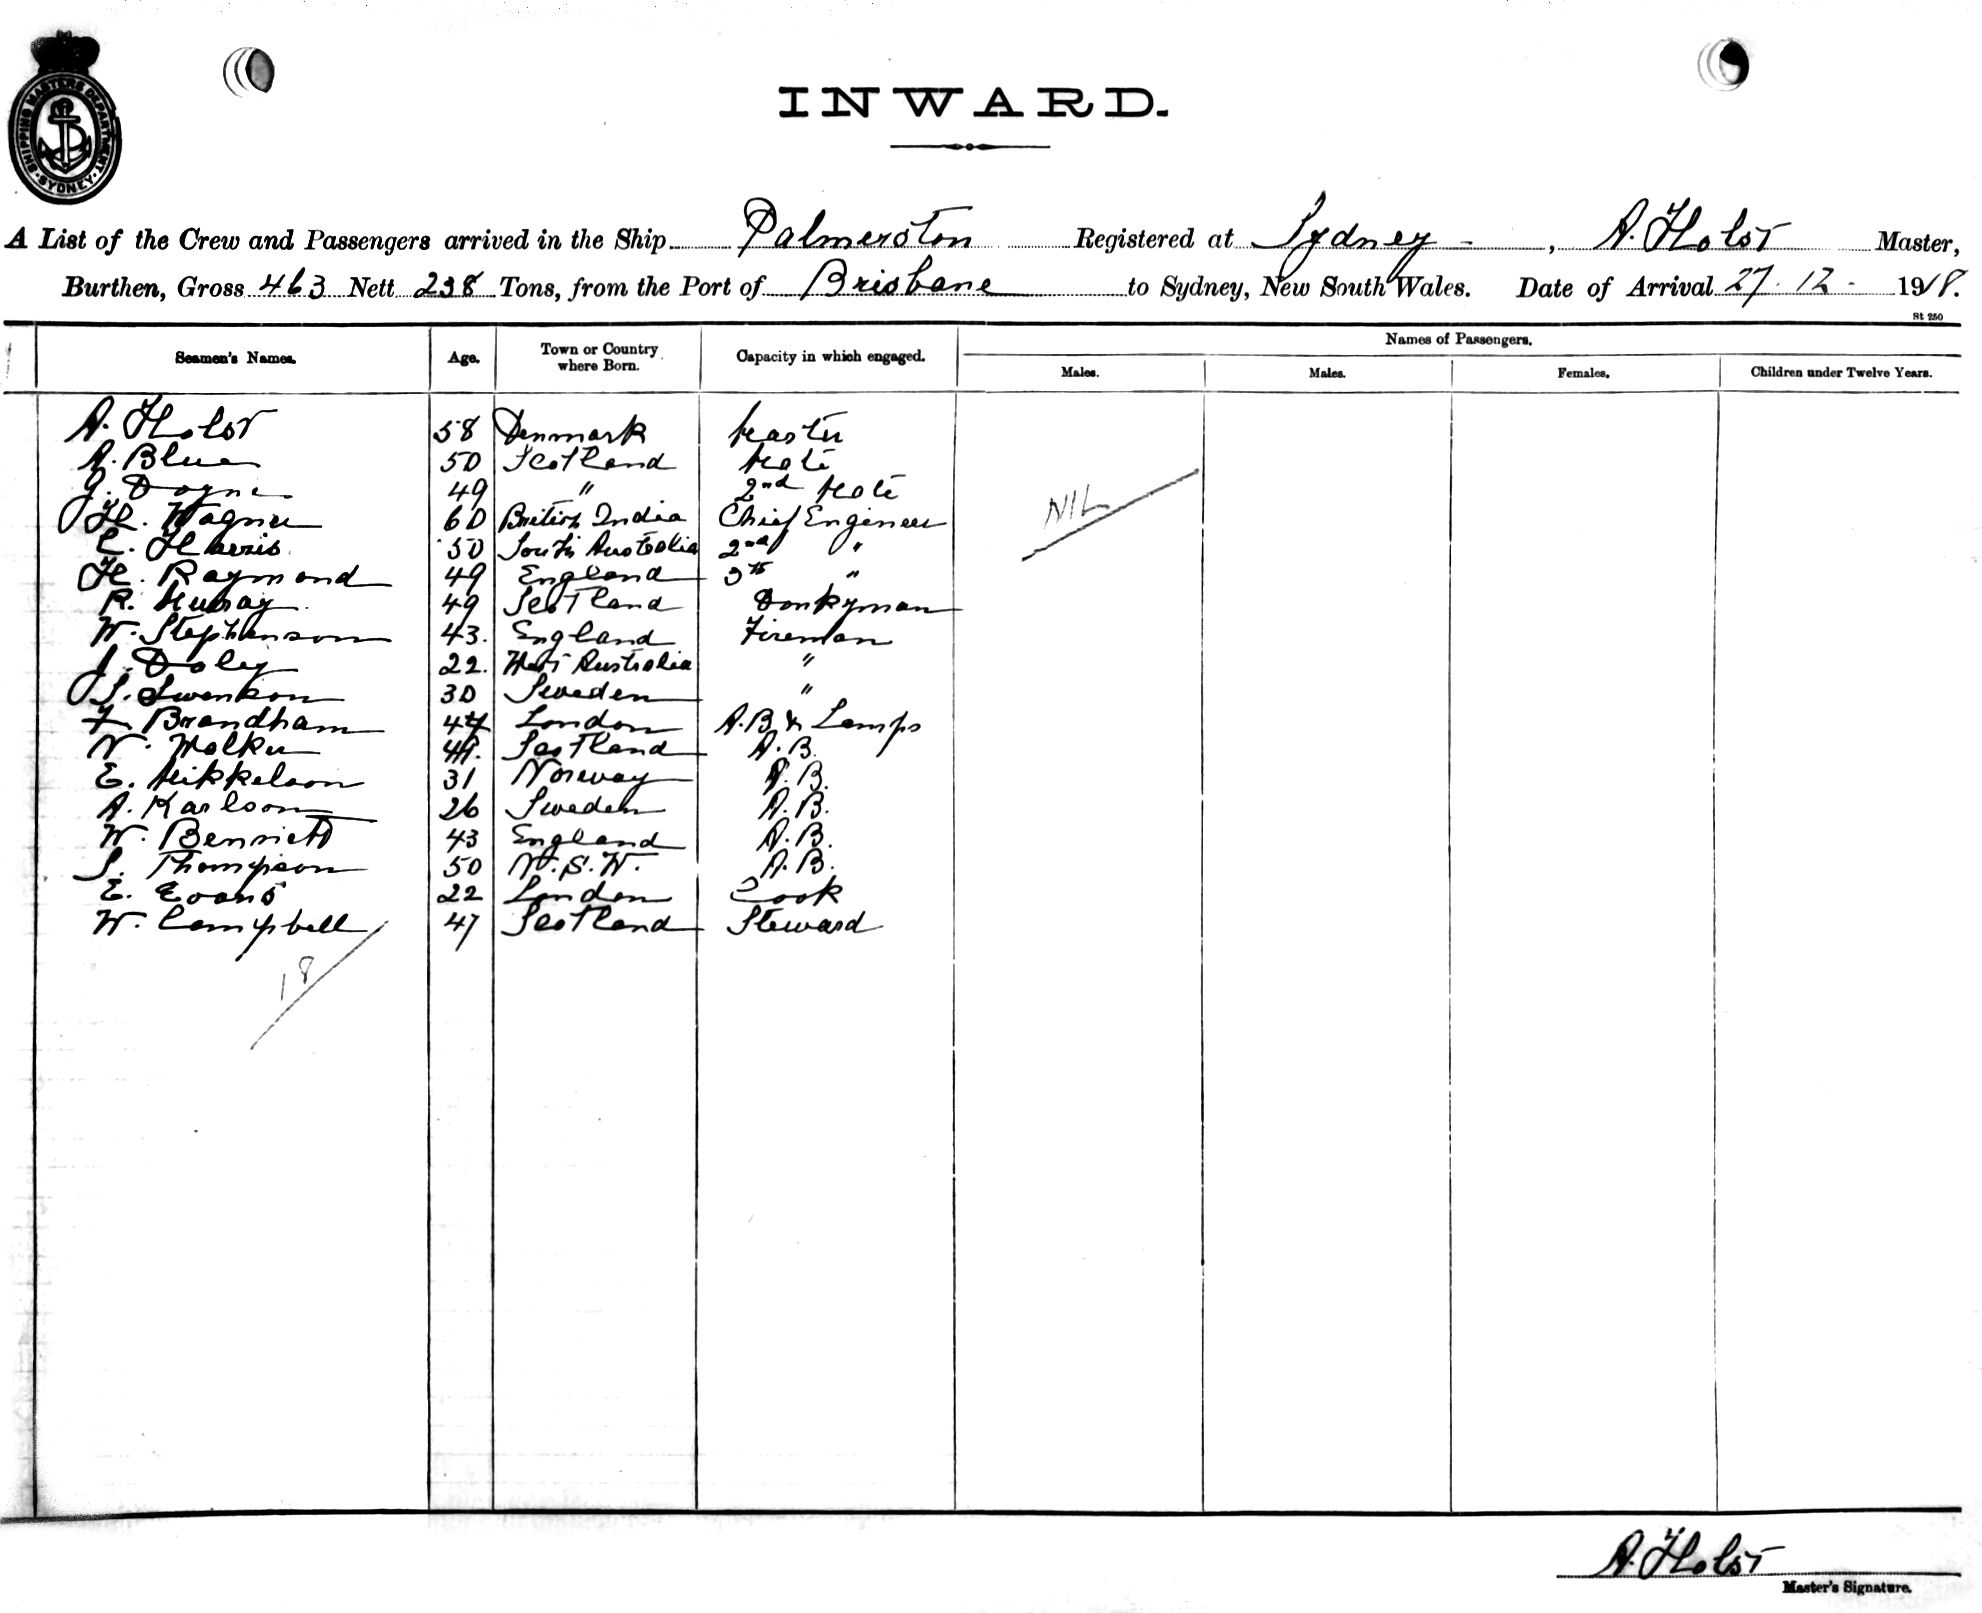 SHIPPING MASTERS DEPARTMENT
SYDNEY
INWARD.
A List of the Crew and Passengers arrived in the Ship Palmerston Registered at Sydney - , A. Holst Master,
Burthen, Gross 463 Nett 238 Tons, from the Port of Brisbane to Sydney, New South Wales. Date of Arrival 27. 12 - 1918.
St 250
Seamen's Names. Age. Town or Country where Born. Capacity in which engaged. Names of Passengers.
Males. Males. Females. Children under Twelve Years.
A. Holst 58 Denmark Master
A. Blue 50 Scotland Mate
J. Doyne 49 " 2nd Mate
H. Wagner 60 British India Chief Engineer
NIL
C. Harris 50 South Australia 2nd "
H. Raymond 49 England 3rd "
R. Murray 49 Scotland Donkyman
W. Stephenson 43. England Fireman
J. Doley 22. West Australia "
S. Swenson 30 Sweden "
F. Brandham 47 London A.B & Lamps
N. Walker 48. Scotland A.B.
E. Mikkelson 31 Norway A.B.
A. Karlson 26 Sweden A.B.
W. Bennett 43 England A.B.
S. Thompson 50 N.S.W. A.B.
E. Evans 22 London Cook
W. Campbell 47 Scotland Steward
18
A. Holst
Master's Signature.